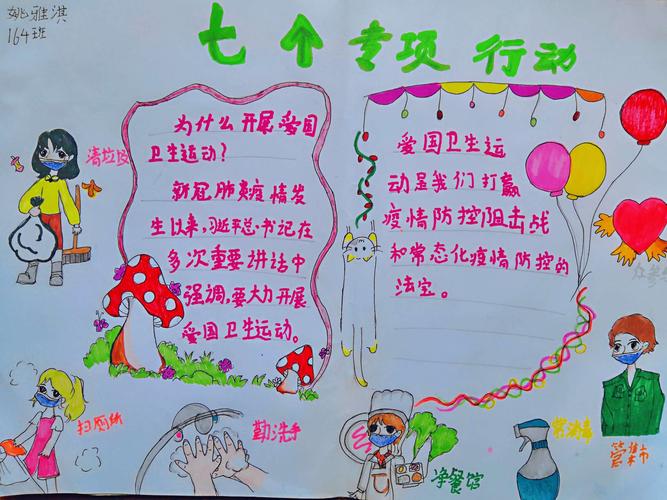 姚雅淇
164班
七个专项行动
清垃圾
为什么开展爱国
卫生运动?
新冠肺炎疫情发
生以来,习近平总书记在
多次重要讲话中
强调,要大力开展
爱国卫生运动。
爱国卫生运
动是我们打赢
疫情防控阻击战
和常态化疫情防控的
法宝。
众参
扫厕所
勤洗手
净餐馆
常消毒
管集市